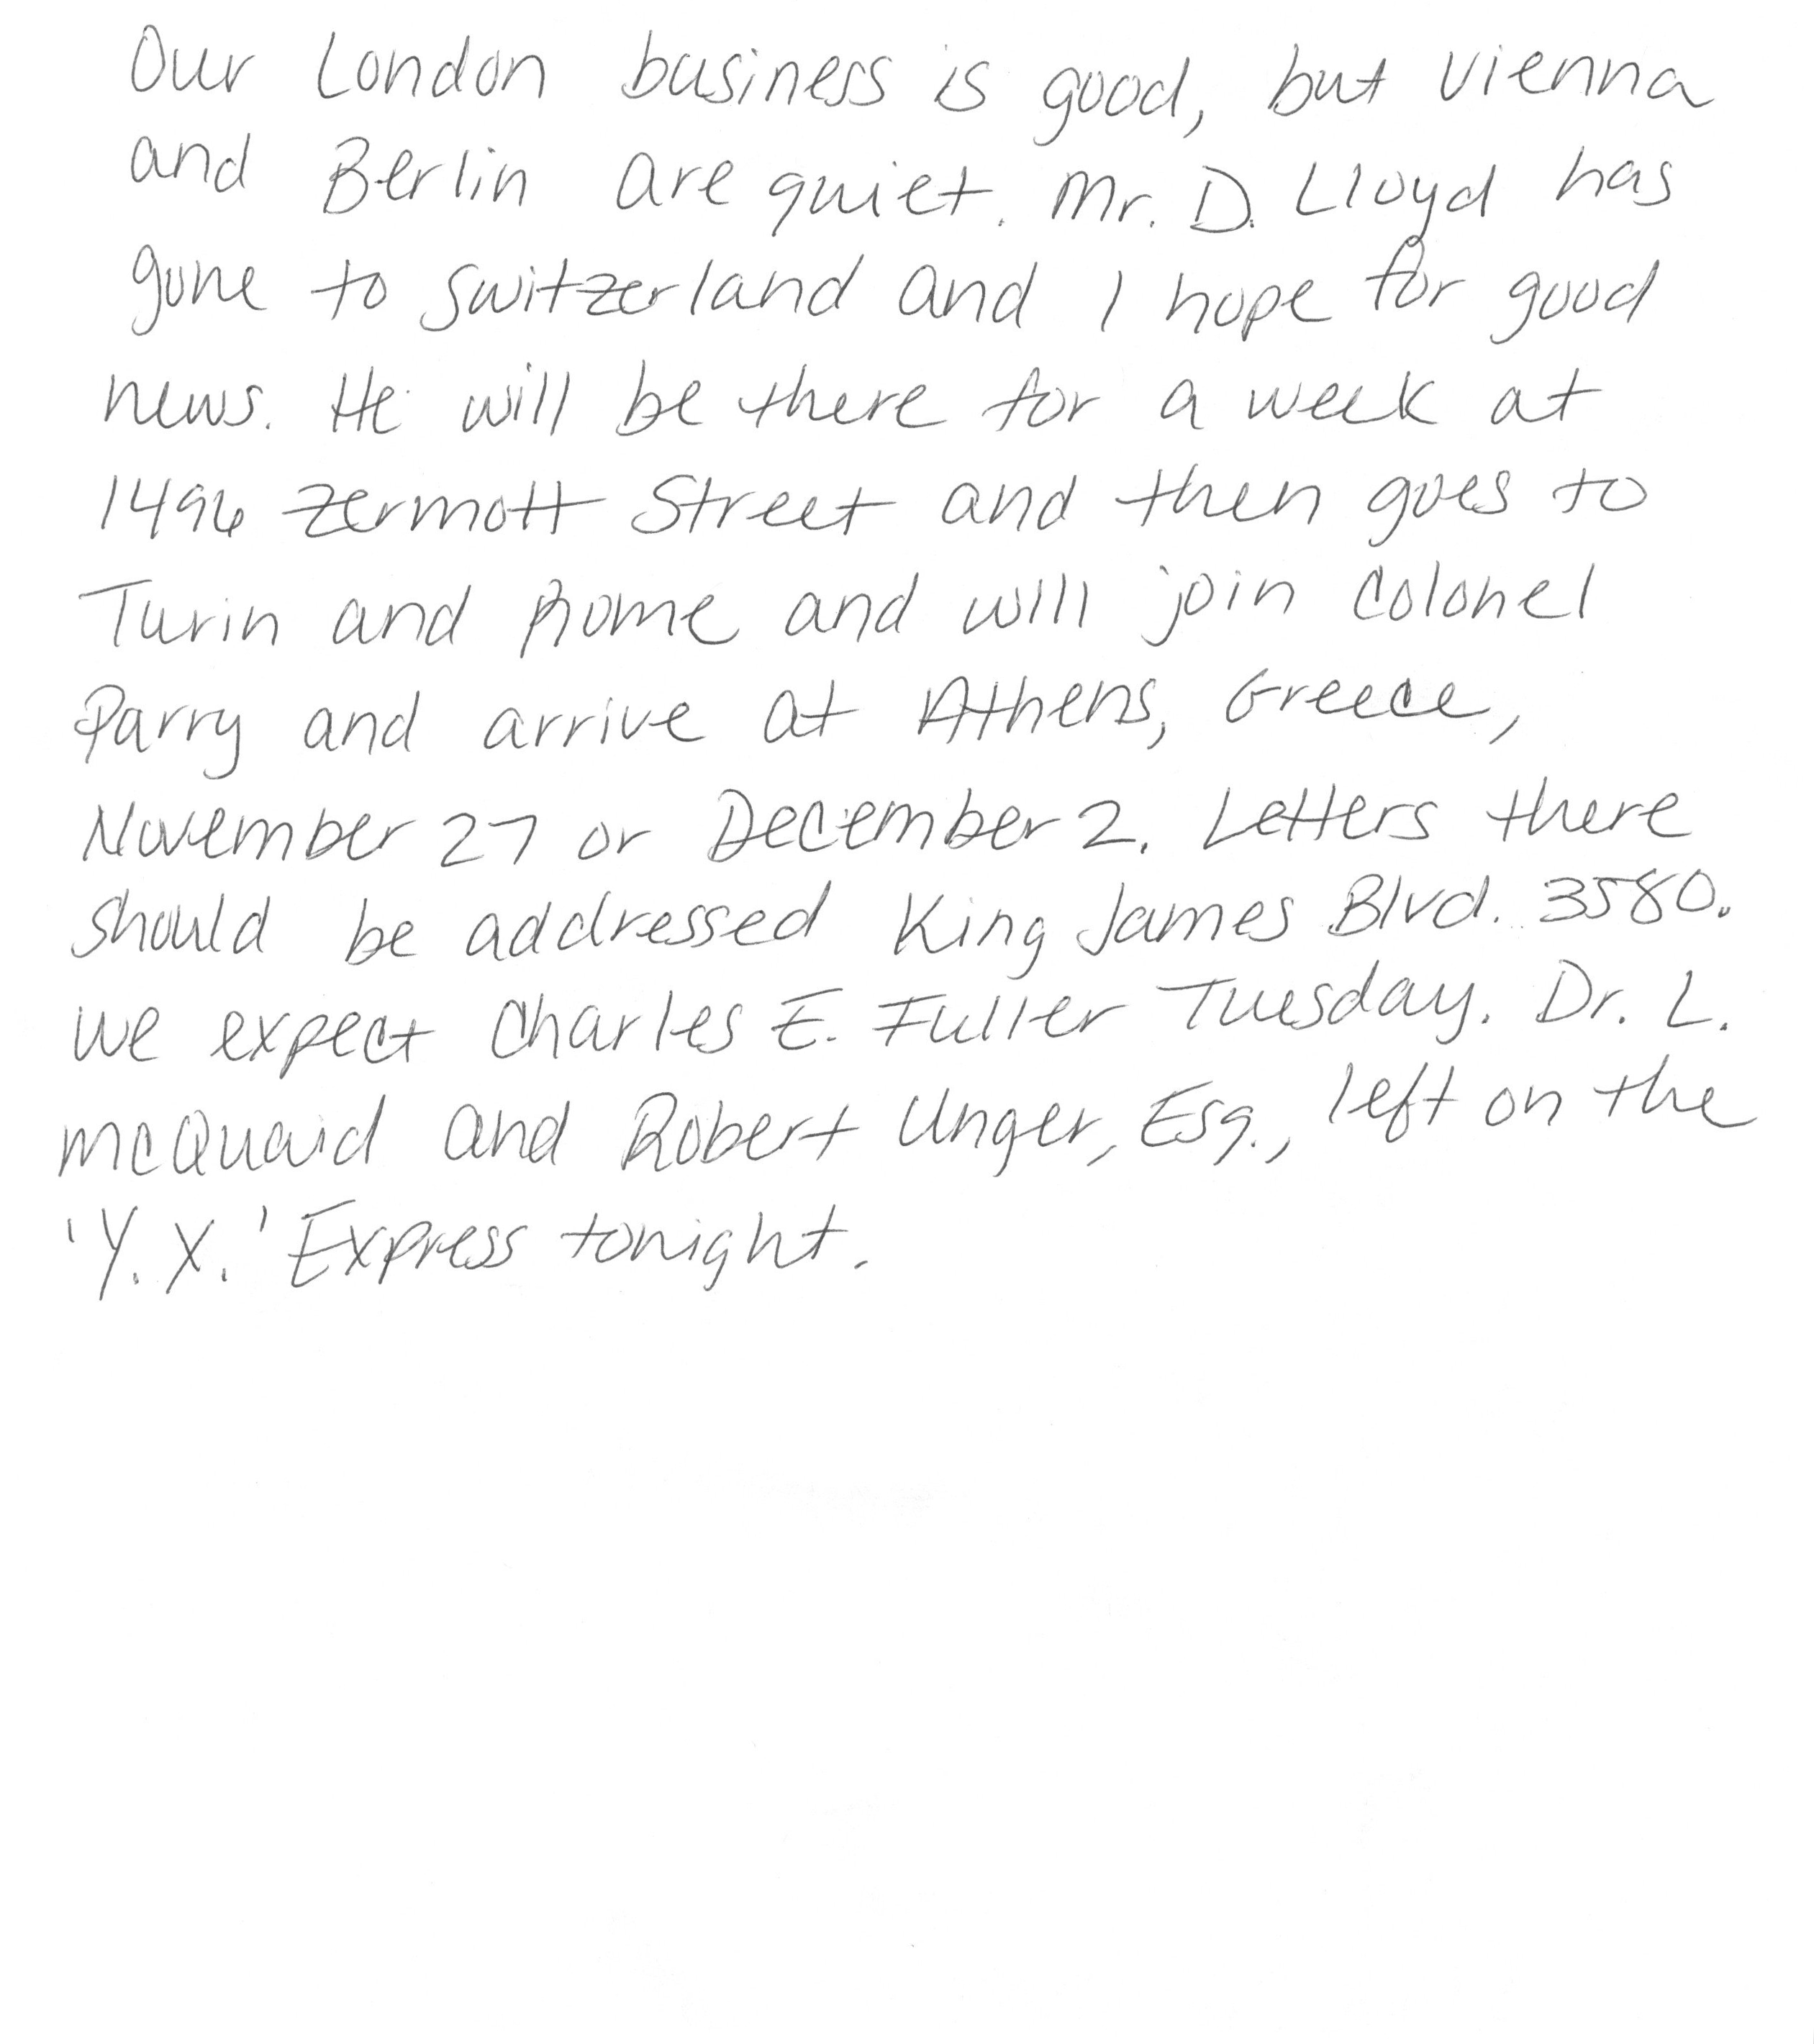 Our London business is good, but Vienna
and Berlin are quiet. Mr. D. Lloyd has
gone to Switzerland and I hope for good
news. He will be there for a week at
1496 Zermott Street and then goes to
Turin and Rome and will join Colonel
Parry and arrive at Athens, Greece,
November 27 or December 2. Letters there
should be addressed King James Blvd. 3580.
We expect Charles E. Fuller Tuesday. Dr. L.
McQuaid and Robert Unger, Esq., left on the
'Y.X.' Express tonight.